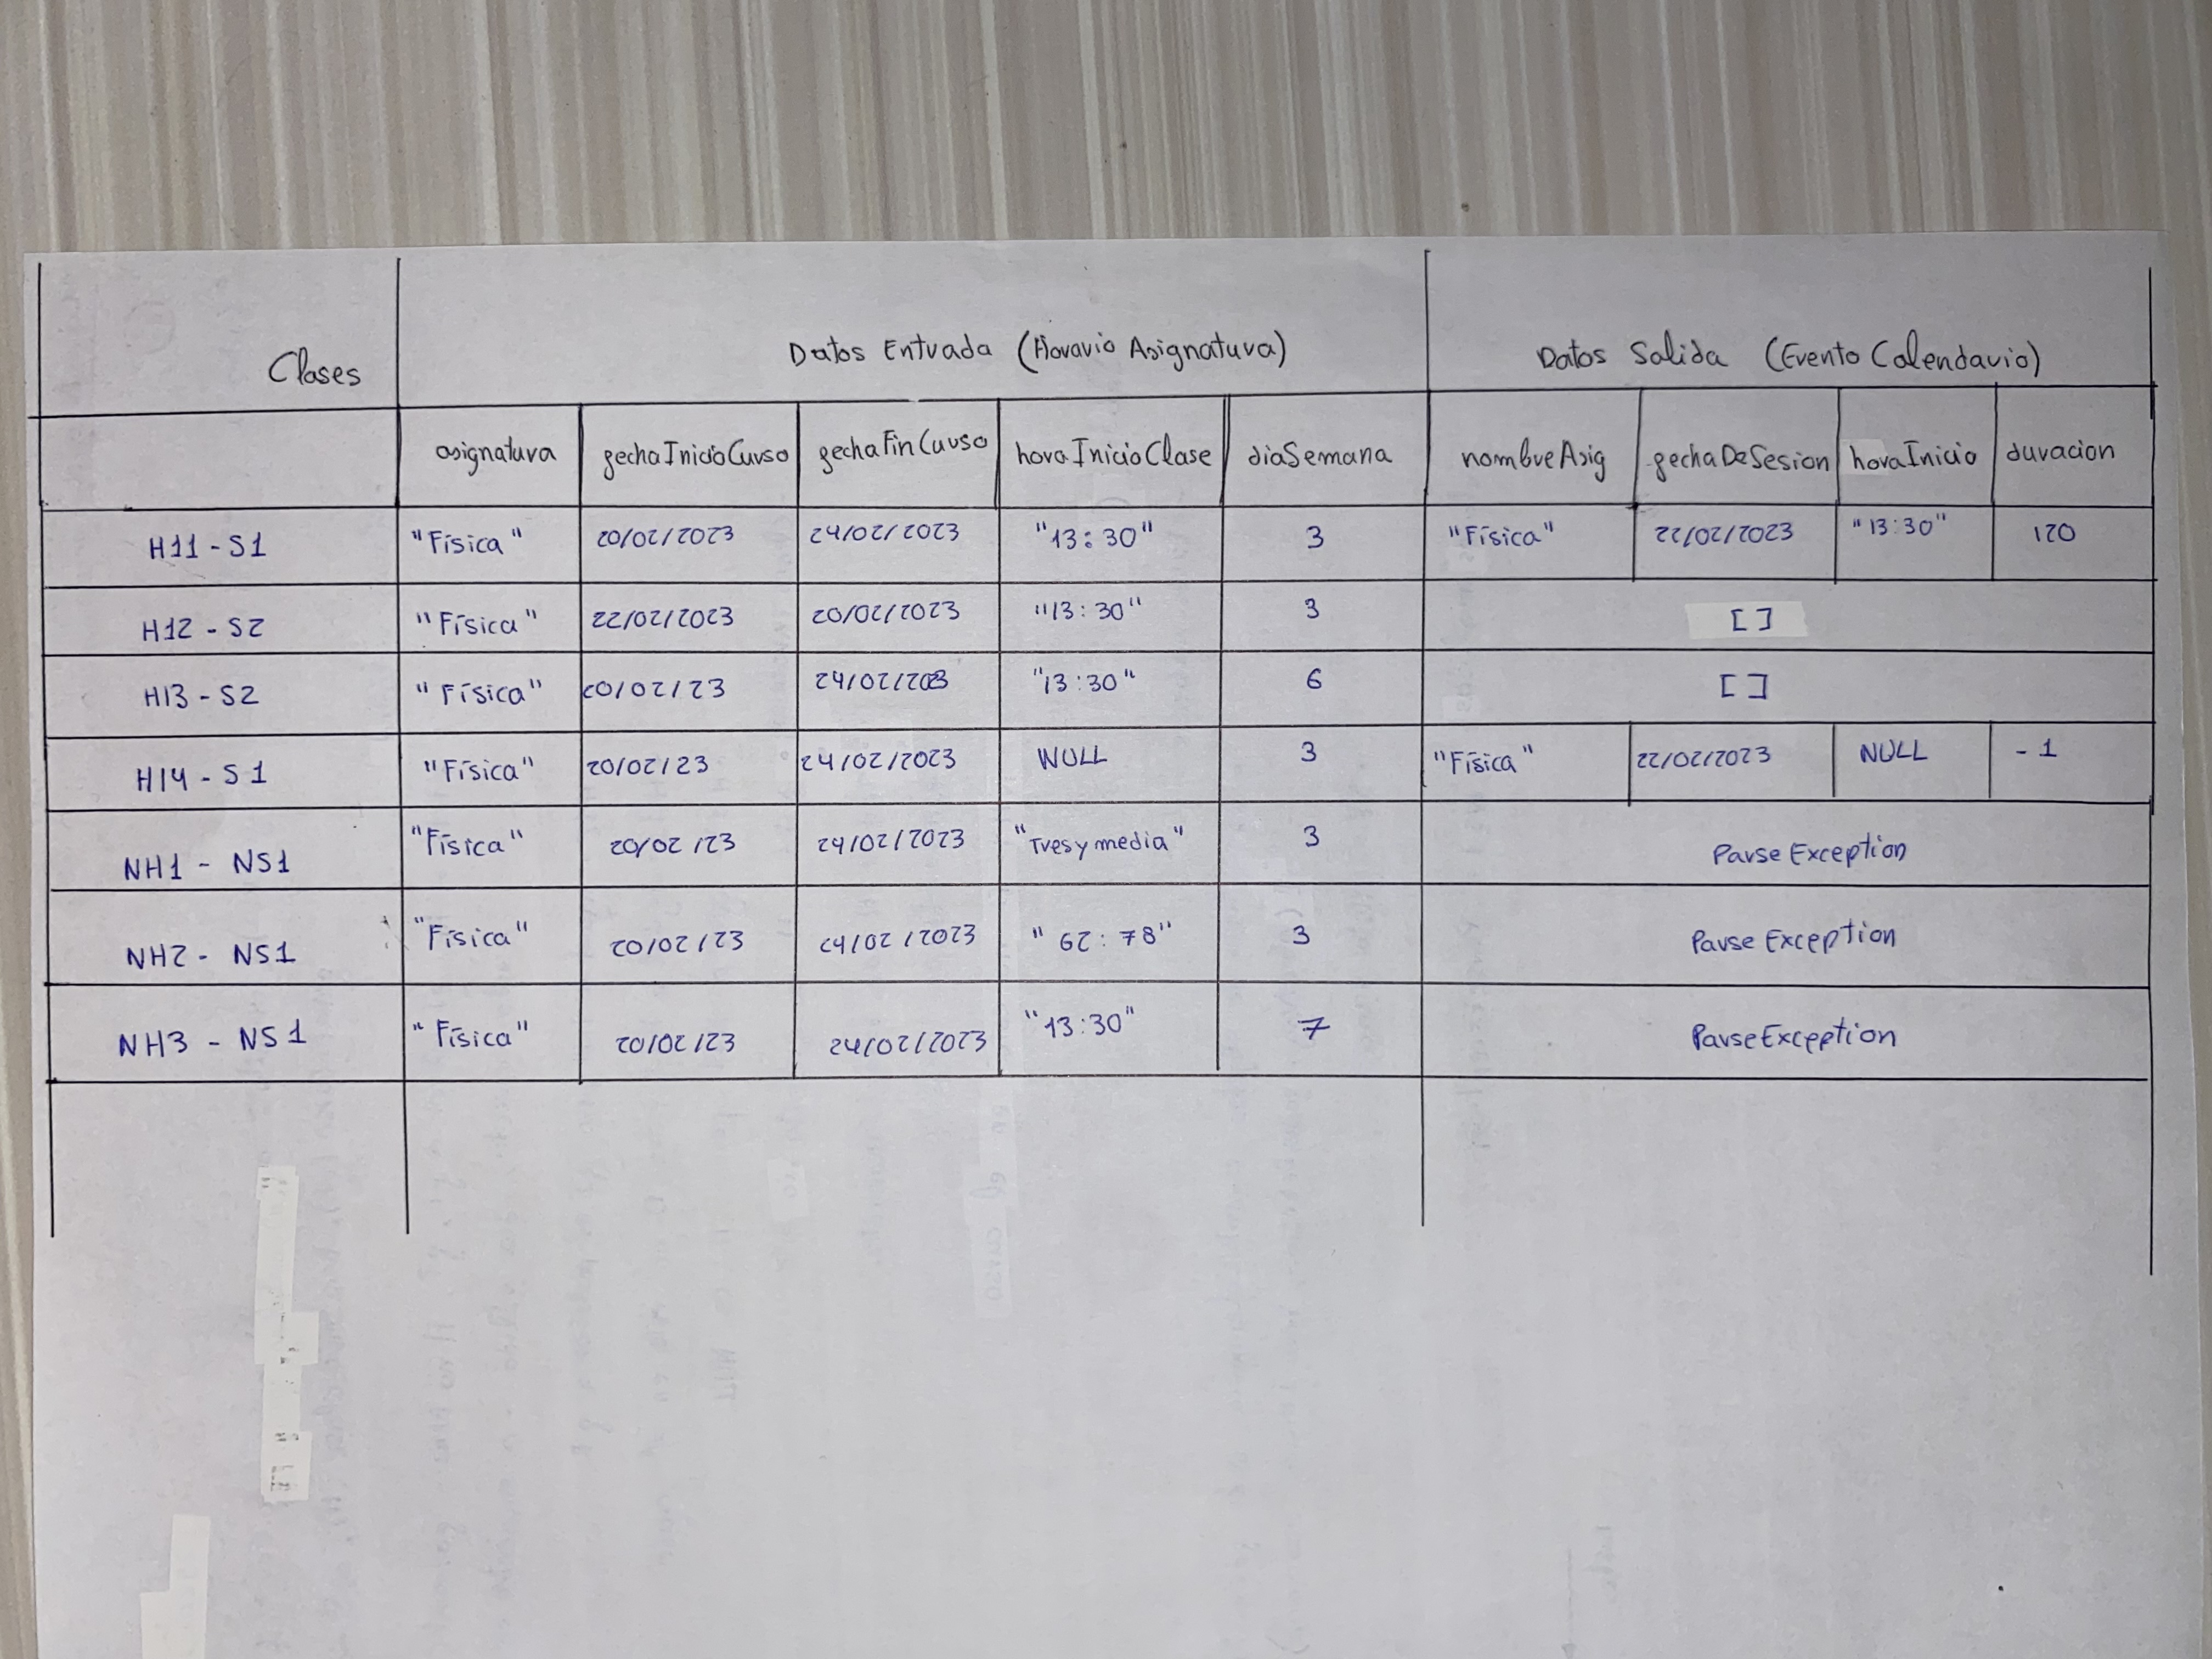 Clases Datos Entrada (Horario Asignatura) Datos Salida (Evento Calendario)
asignatura fechaInicioCurso fechaFinCurso horaInicioClase diaSemana nombreAsig fechaDeSesion horaInicio duracion
H11 - S1 "Física" 20/02/2023 24/02/2023 "13:30" 3 "Física" 22/02/2023 "13:30" 120
H12 - S2 "Física" 22/02/2023 20/02/2023 "13:30" 3 []
H13 - S2 "Física" 20/02/23 24/02/2023 "13:30" 6 []
H14 - S1 "Física" 20/02/23 24/02/2023 NULL 3 "Física" 22/02/2023 NULL -1
NH1 - NS1 "Física" 20/02/23 24/02/2023 "Tresymedia" 3 ParseException
NH2 - NS1 "Física" 20/02/23 24/02/2023 "62:78" 3 ParseException
NH3 - NS1 "Física" 20/02/23 24/02/2023 "13:30" 7 ParseException